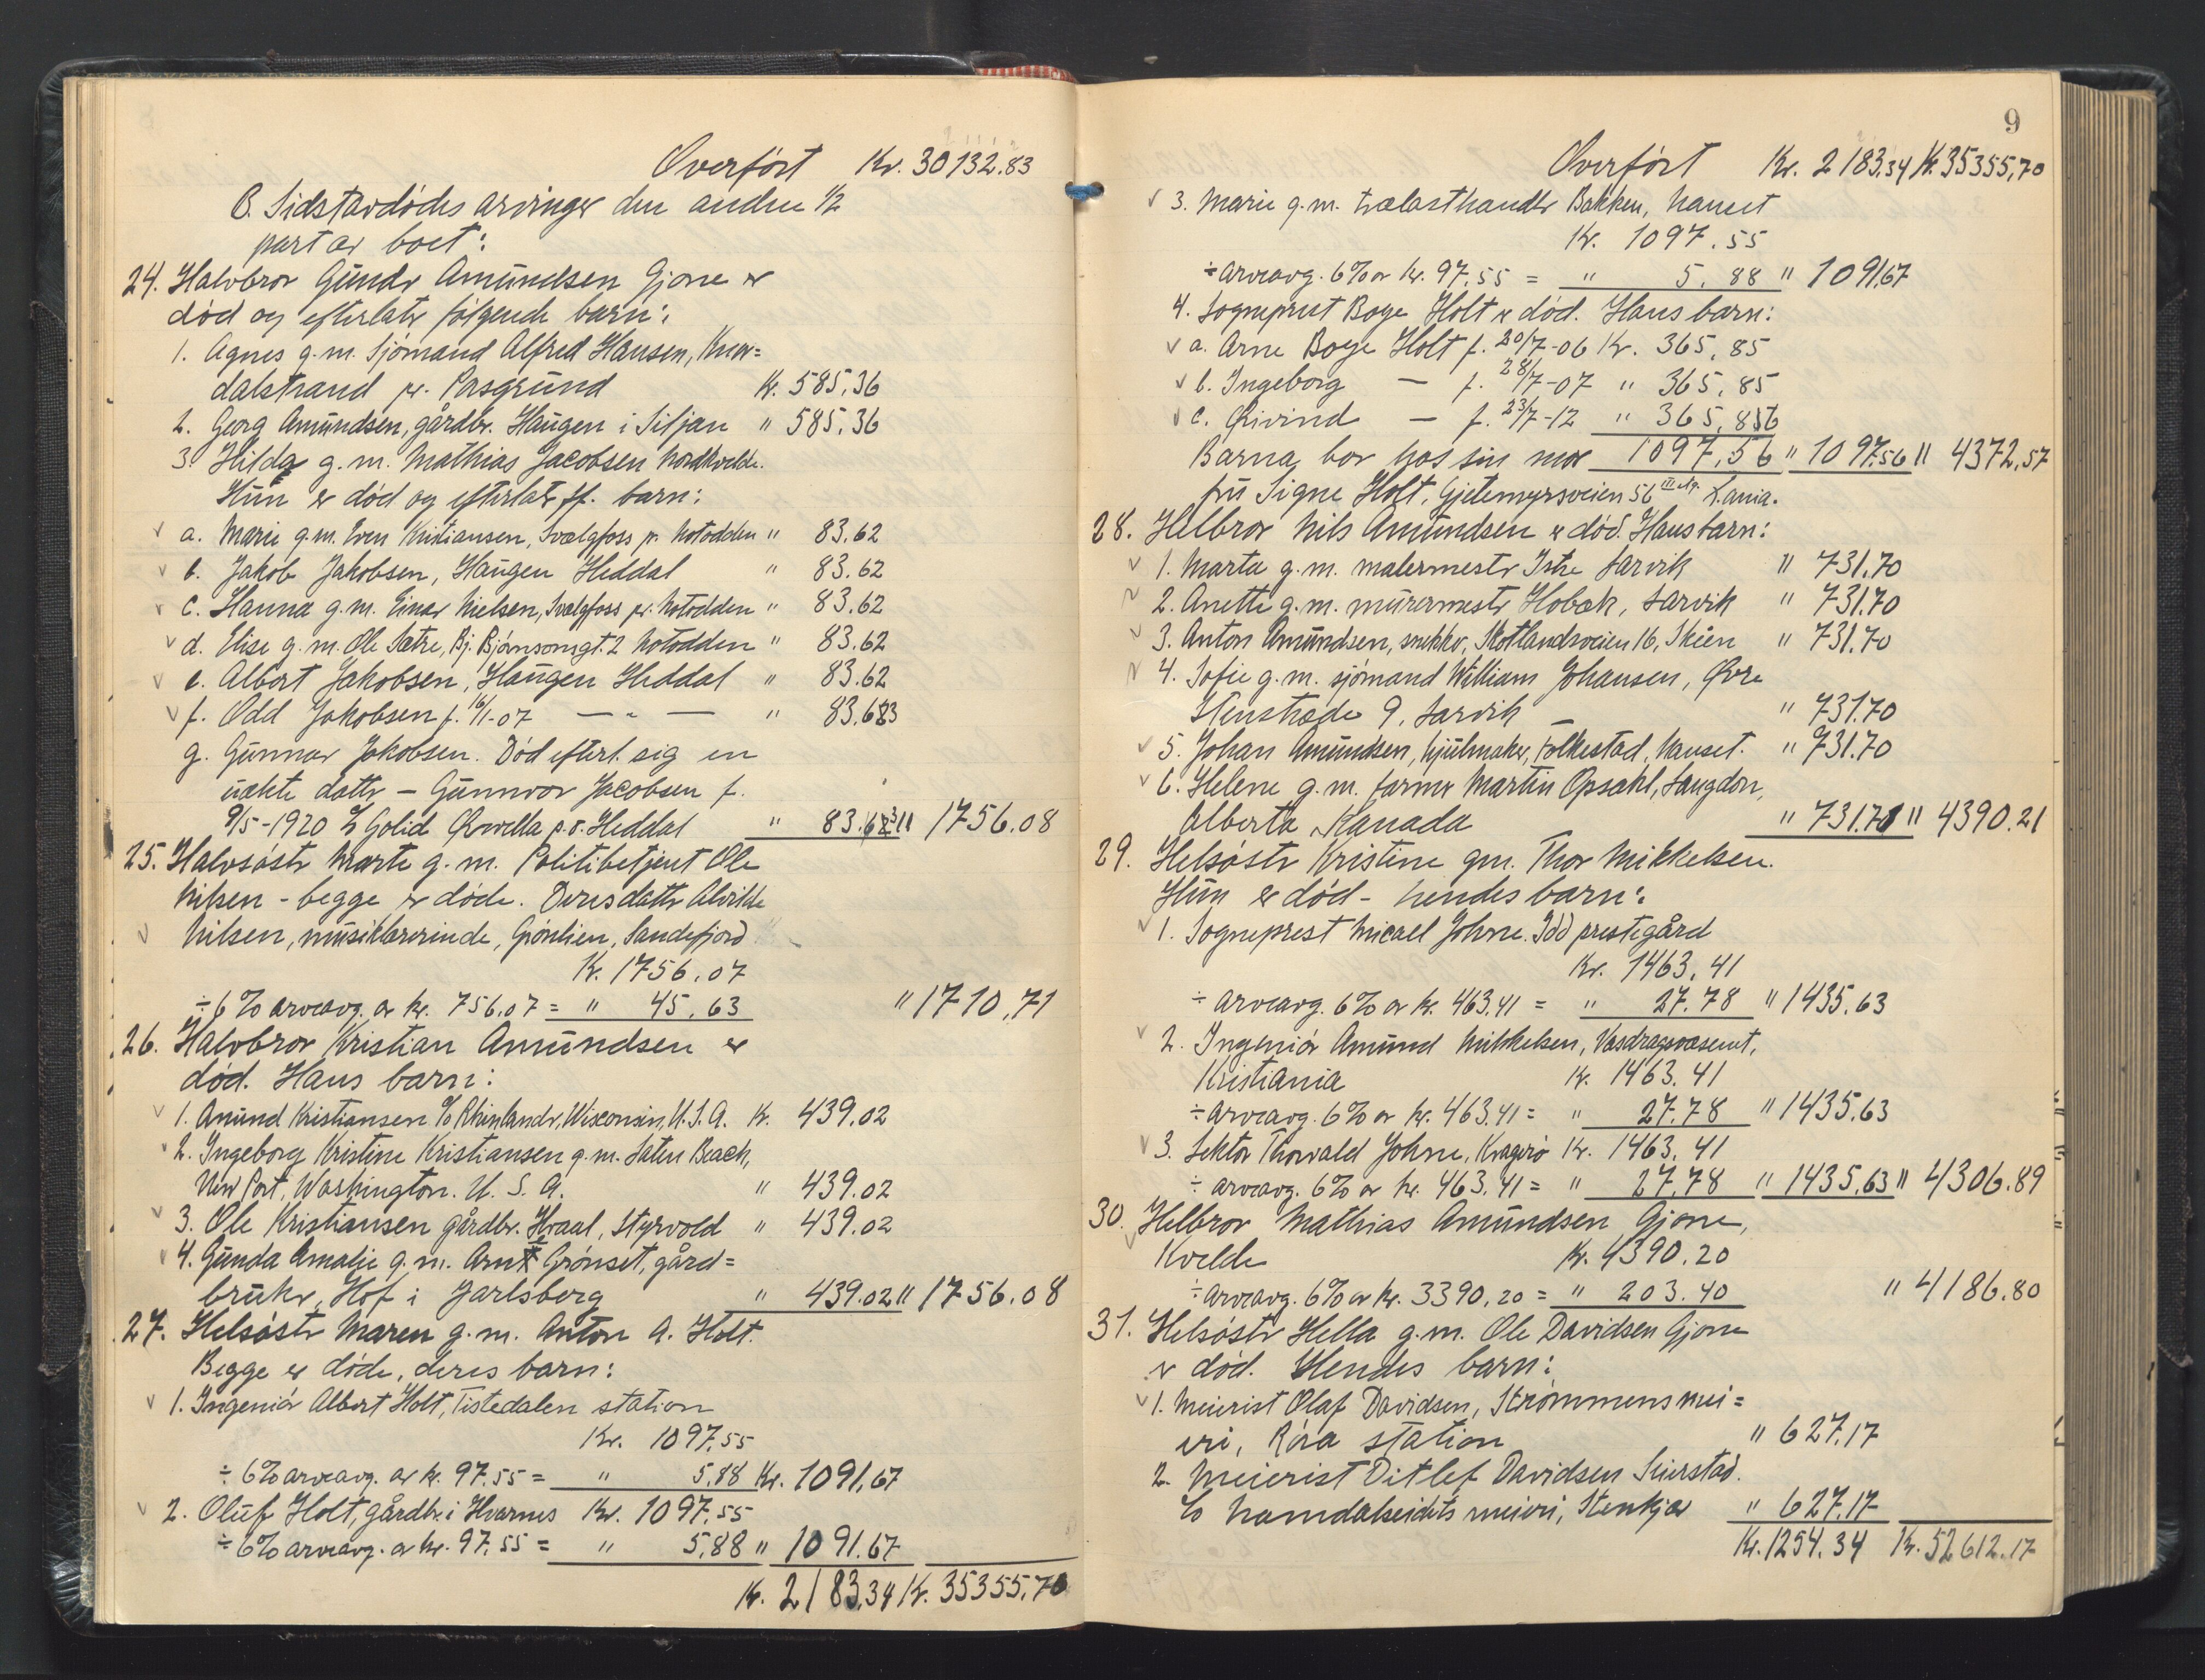 Overført Kr. 30132.83
B. Sidstavdødes arvinger den anden 1/2
part av boet:
24. Halvbror Gunder Amundsen Gjone er
død og efterlater følgende barn:
1. Agnes g.m. Sjømand Alfred Hansen,
dalstrand pr. Porsgrund Kr. 585,36
2. Georg Amundsen, gårdbr. Haugen i Siljan " 585,36
3. Hilda g.m. Mathias Jacobsen Nordkvelde.
Hun er død og efterlater ff. barn:
a. Marie g.m. Even Kristiansen, Svælgfoss pr. Notodden " 83.62
b. Jakob Jakobsen, Haugen Heddal " 83.62
c. Hanna g.m. Einar Nielsen, Svælgfoss pr. Notodden " 83.62
d. Elise g.m. Ole Sætre, Bj. Bjørnsonsgt. 2 Notodden " 83.62
e. Albert Jakobsen, Haugen Heddal " 83.62
f. Odd Jakobsen f. 16/1-07 — " — " 83.63
g. Gunnar Jakobsen. Død efterl. sig en
uekte datter — Gunnvor Jacobsen f.
9/5-1920 c/o Golid Ørvella p.å. Heddal " 83.63 " 1756.08
25. Halvsøster Marte g.m. Politibetjent Ole
Nilsen - begge er døde. Deres datter Alvilde
Nilsen, musiklærerinde, Grønlien, Sandefjord
Kr. 1756.07
÷ 6% arveavg. av kr. 756.07 = " 45.63 " 1710,71
26. Halvbror Kristian Amundsen er
død. Hans barn:
1. Amund Kristiansen c/o Rhinlander, Wisconsin, U.S.A. Kr. 439.02
2. Ingeborg Kristine Kristiansen g.m. Saten Beach,
New Port, Washington. U.S.A. " 439.02
3. Ole Kristiansen gårdbr. Hvaal, Styrvold " 439.02
4. Gunda Amalie g.m. Arnt Grønset, gård=
bruker, Hof i Jarlsberg " 439.02 " 1756.08
27. Helsøster Maren g.m. Anton A. Holt.
Begge er døde, deres barn:
1. Ingeniør Albert Holt, Tistedalen station
Kr. 1097.55
÷ 6% arveavg. av kr. 97.55 = " 5.88 Kr. 1091,67
2. Oluf Holt, gårdbr. i Hvarnes Kr. 1097.55
÷ 6% arveavg. av kr. 97.55 = " 5,88 " 1091.67
Kr. 2183,34 Kr. 35355,70
9
Overført Kr. 2183,34 Kr. 35355,70
3. Marie g.m. trælasthandler Bakken, Nanset
Kr. 1097.55
÷ arveavg. 6% av kr. 97.55 = " 5.88 " 1091,67
4. Sogneprest Boye Holt er død. Hans barn:
a. Arne Boye Holt f. 20/7-06 Kr. 365,85
b. Ingeborg — f. 28/7-07 " 365,85
c. Øivind — f. 23/7-12 " 365,86
Barna bor hos sin mor 1097,56 " 1097.56 " 4372,57
fru Signe Holt, Gjetemyrsveien 56 III etg. Kr.ania.
28. Helbror Nils Amundsen er død. Hans barn:
1. Marta g.m. malermester Istre Larvik " 731.70
2. Anette g.m. murermester Hobæk, Larvik " 731.70
3. Anton Amundsen, snekker, Skotlandsveien 16, Skien " 731.70
4. Sofie g.m. sjømand William Johansen, Øvre
Stenstræde 9, Larvik " 731.70
5. Johan Amundsen, hjulmaker, Folkestad, Nanset. " 731.70
6. Helene g.m. farmer Martin Opsahl, Langdon,
Alberta, Kanada " 731.71 " 4390.21
29. Helsøster Kristine gm. Thor Mikkelsen.
Hun er død - hendes barn:
1. Sogneprest Micael Johne. Idd prestegård
Kr. 1463,41
÷ arveavg. 6% av kr. 463.41 = " 27.78 " 1435.63
2. Ingeniør Amund Mikkelsen, Vasdragsvæsenet,
Kristiania Kr. 1463.41
÷ arveavg. 6% av kr. 463.41 = " 27.78 " 1435.63
3. Lektor Thorvald Johne, Kragerø Kr. 1463,41
÷ arveavg. 6% av kr. 463.41 = " 27.78 " 1435.63 " 4306.89
30. Helbror Mathias Amundsen Gjone,
Kvelde Kr. 4390.20
÷ arveavg. 6% av kr. 3390.20 = " 203.40 " 4186.80
31. Helsøster Hella g.m. Ole Davidsen Gjone
er død. Hendes barn:
1. Meierist Olaf Davidsen, Strømmens mei=
eri, Røra station " 627,17
2. Meierist Ditlef Davidsen Seierstad.
c/o Namdalseidets meieri, Stenkjær " 627,17
Kr. 1254.34 Kr. 52612.17